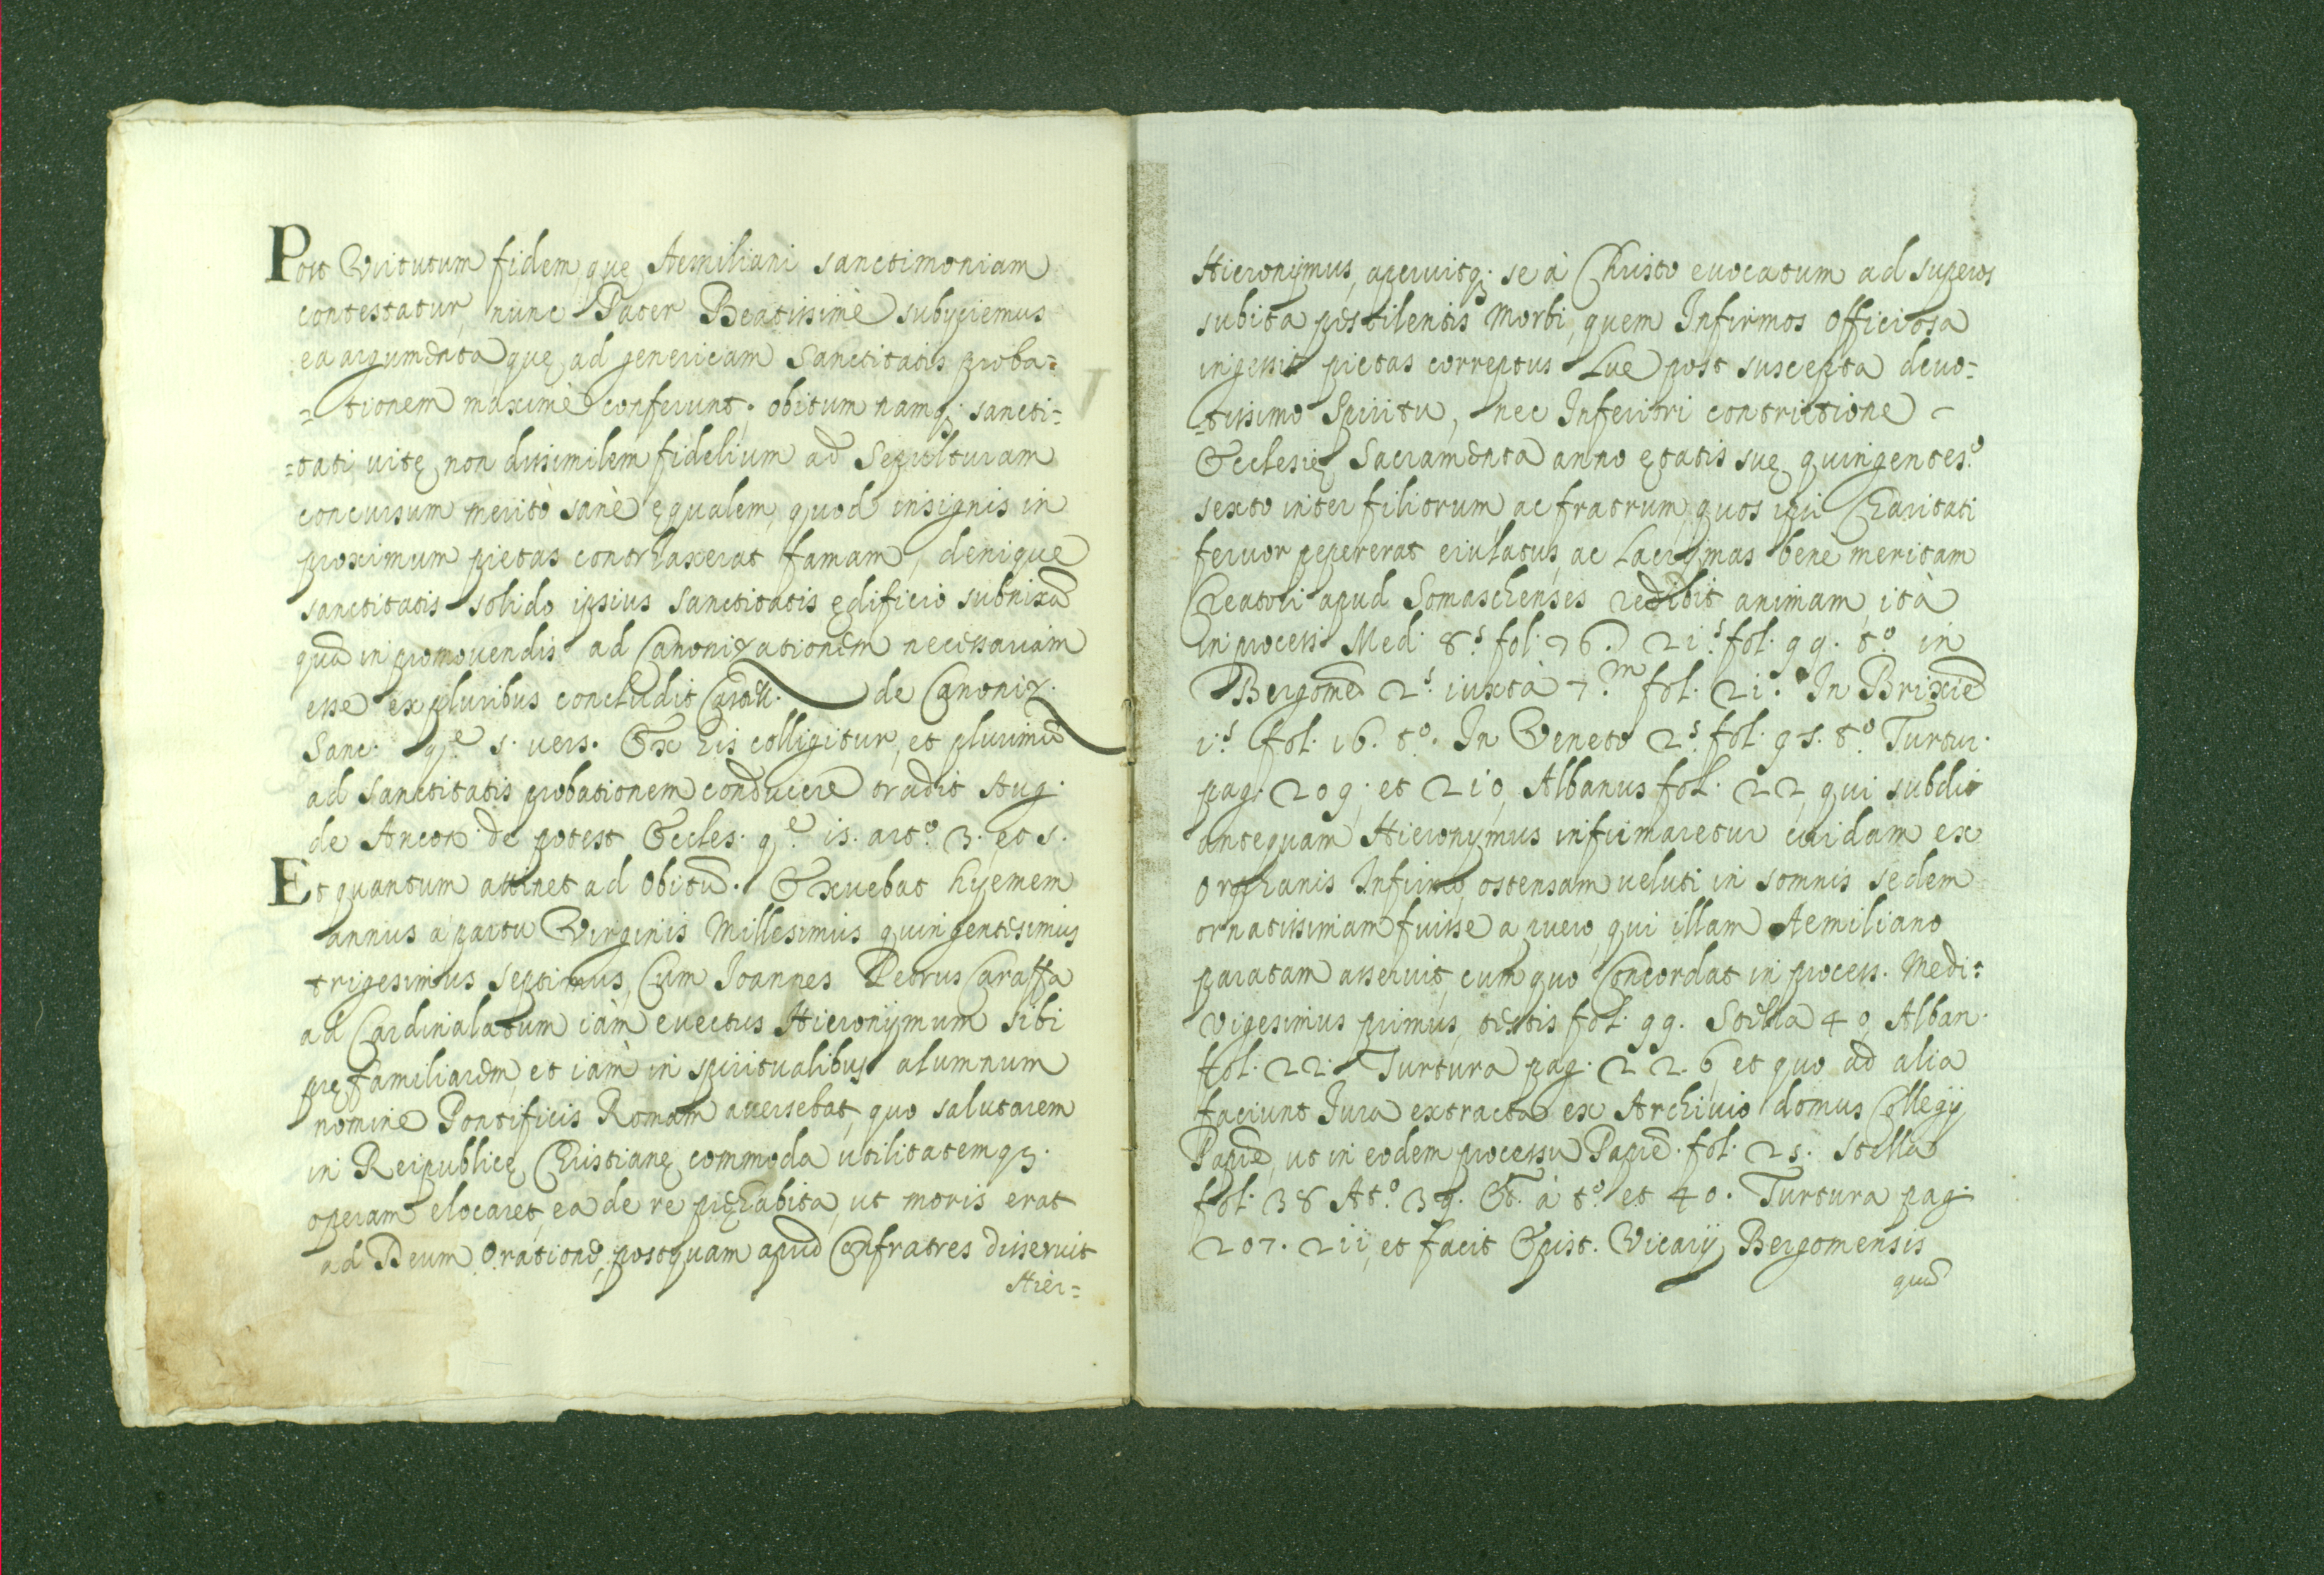 Post Virtutum fidem, quę Aemiliani sanctimoniam
contestatur, nunc Pater Beatissimè subijciemus
ea argumenta, quę ad genericam Sanctitatis proba=
=tionem maximè conferunt; obitum namq; sancti=
=tati vitę non dissimilem fidelium ad Sepulturam
concursum meritò sanè ęqualem, quod insignis in
proximum pietas contrhaxerat famam, denique
sanctitatis solido ipsius Sanctitatis ędificio subnixā
quā in promovendis ad Canonizationem necessariam
esse ex pluribus concludit de Canoniz.
Sanc. qe. 5. vers. Ex his colligitur, et plurimū
ad Sanctitatis probationem conducere tradit Aug.
de Ancon. de potest Eccles. qe. 15. arto. 3. et 5.
Et quantum attinet ad Obitū. Exuebat hyemem
annus à partu Virginis Millesimus quingentesimus
trigesimus septimus, Cum Ioannes Petrus Caraffa
ad Cardinalatum iàm evectus Hieronijmum sibi
pręfamiliarem, et iàm in spiritualibus alumnum
nomine Pontificis Romam aversebat, quo salutarem
in Reipublicę Christianę commoda utilitatemq;
operam elocaret, ea de re pręhabita, ut moris erat
ad Deum Orationē, postquam apud Confratres disseruit
Hier=
Hieronijmus, aperuitq; se à Christo evocatum ad superos
subita pestilentis Morbi, quem Infirmos Officiosa
ingessit pietas correptus Lue post suscepta devo=
=tissimo Spiritu, nec Inferiori contrictione
Ecclesię Sacramenta anno ętatis suę quingenteso.
sexto inter filiorum ac fratrum, quos ipsi Charitati
fervor pepererat eiulatus, ac Lacrijmas bene meritam
Creatori apud Somaschenses redidit animam, ità
in process. Med. 8.s fol. 76. 21.s fol. 99. to. in
Bergomē 2.s iuxtà 7.m fol. 21. In Brixiē
1.s fol. 16. to. In Veneto 2.s fol. 95. to. Turtur.
pag. 209. et 210, Albanus fol. 22, qui subdit
antequam Hieronymus infirmaretur cuidam ex
Orphanis Infirmo, ostensam veluti in somnis sedem
ornatissimam fuisse a puero, qui illam Aemiliano
paratam asseruit, cum quo Concordat in process. Medi:
Vigesimus primus testis fol. 99. Stella 40, Alban.
fol. 22. Turtura pag. 22.6, et quo ad alia
faciunt Jura extracta ex Archivio domus Collegij
Papiē, ut in eodem processu Papiē. fol. 25. Stella
fol. 38 Ato. 39. Et. à to. et 40. Turtura pag.
207. 211, et facit Epist. Vicarij Bergomensis
quā